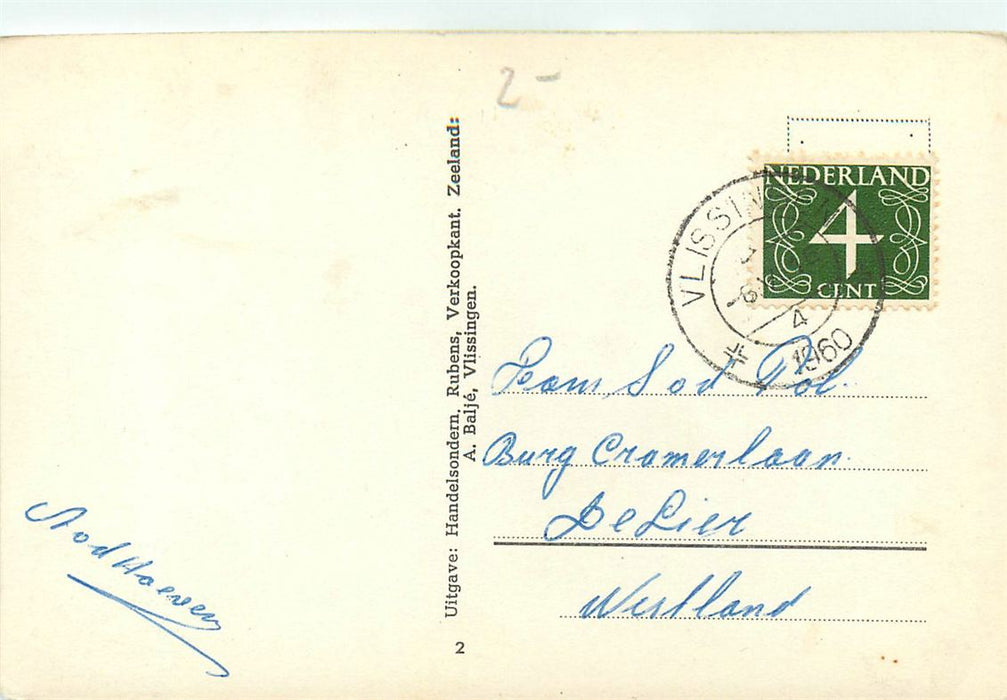 2-
NEDERLAND
4
CENT
VLISSIN
4
1960
Uitgave: Handelsondern. Rubens, Verkoopkant. Zeeland:
A. Baljé, Vlissingen.
Fam, v d Pol.
Burg Cramerlaan.
De Lier
Westland
v d Hoeven
2